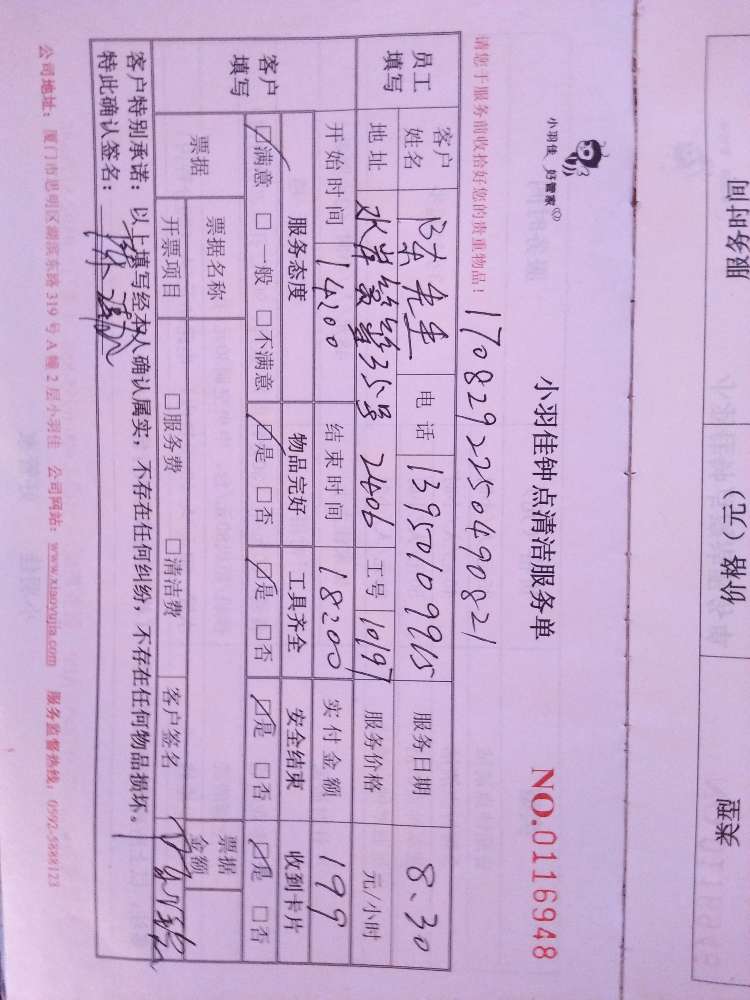 服务时间 价格（元） 类型
小羽佳 好管家
小羽佳钟点清洁服务单
NO.0116948
请您于服务前收拾好您的贵重物品！
1708292250490821
员工填写 客户姓名 陈先生 电话 13950109915 服务日期 8.30
地址 水岸 35号 2406 工号 10197 服务价格 元/小时
开始时间 14:00 结束时间 18:00 实付金额 199
客户填写 服务态度 物品完好 工具齐全 安全结束 收到卡片
☑满意 □一般 □不满意 ☑是 □否 ☑是 □否 ☑是 □否 ☑是 □否
票据 票据名称 票据金额
开票项目 □服务费 □清洁费 客户签名
客户特别承诺：以上填写经本人确认属实，不存在任何纠纷，不存在任何物品损坏。
特此确认签名：
公司地址：厦门市思明区湖滨东路319号A幢2层小羽佳 公司网站：www.xiaoyujia.com 服务监督热线：0592-5888123